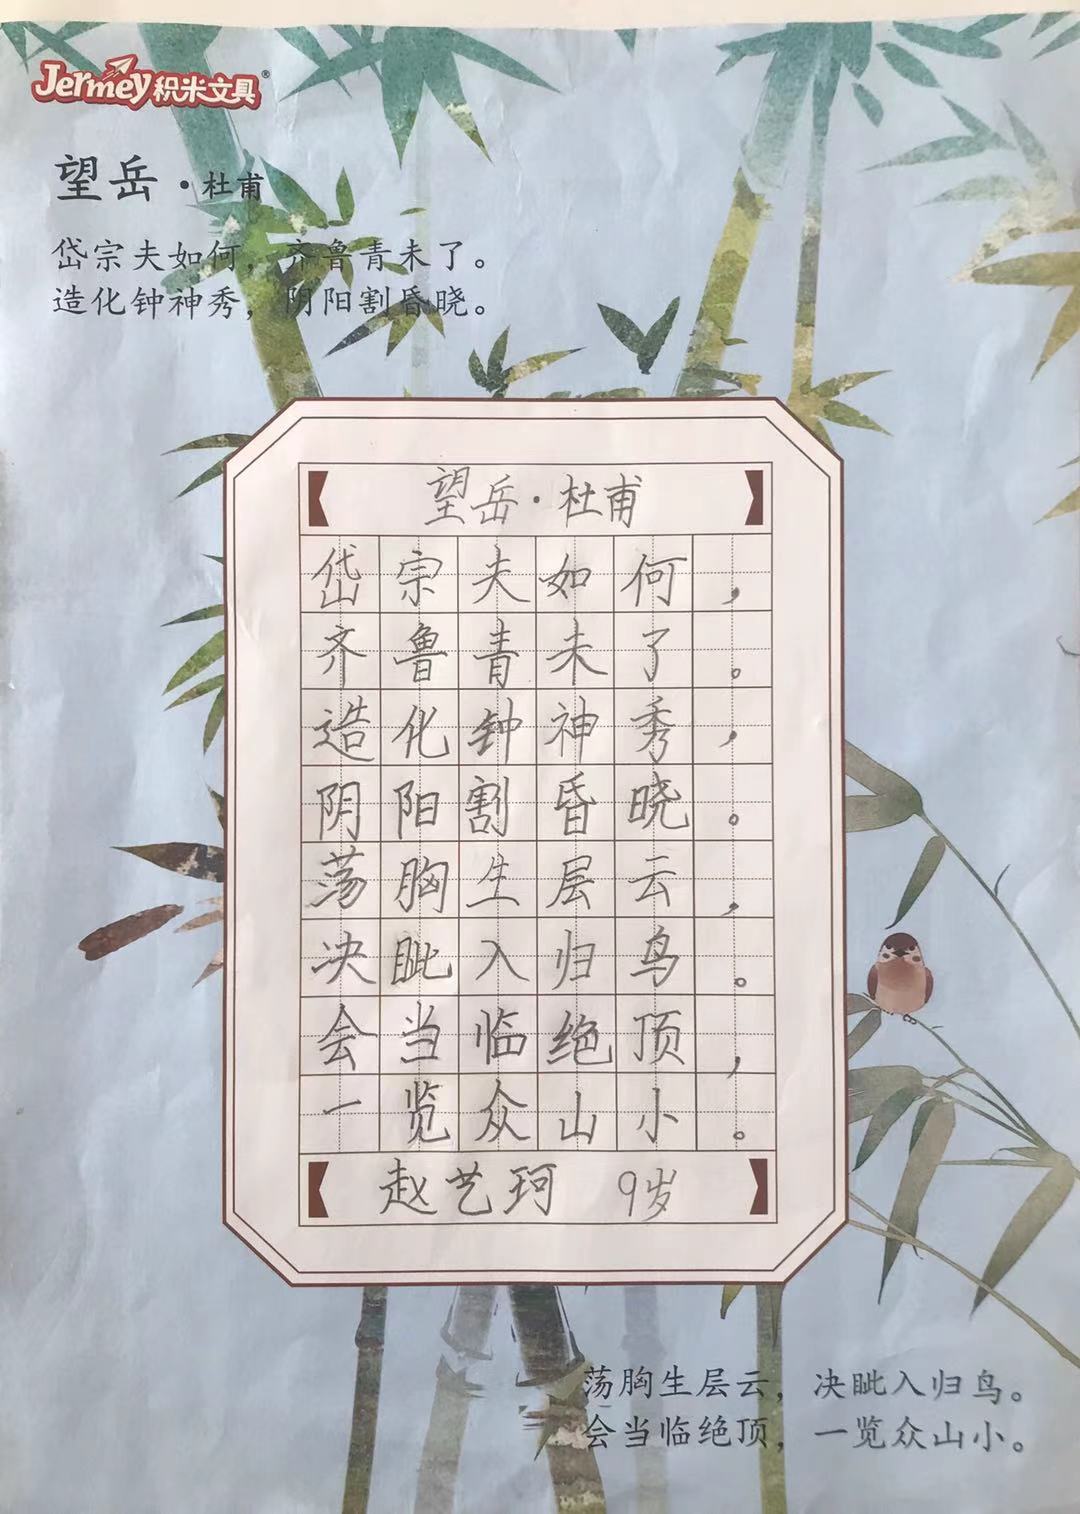 Jermey积米文具®
望岳·杜甫
岱宗夫如何，齐鲁青未了。
造化钟神秀，阴阳割昏晓。
望岳·杜甫
岱宗夫如何，
齐鲁青未了。
造化钟神秀，
阴阳割昏晓。
荡胸生层云，
决眦入归鸟。
会当临绝顶，
一览众山小。
赵艺珂 9岁
荡胸生层云，决眦入归鸟。
会当临绝顶，一览众山小。